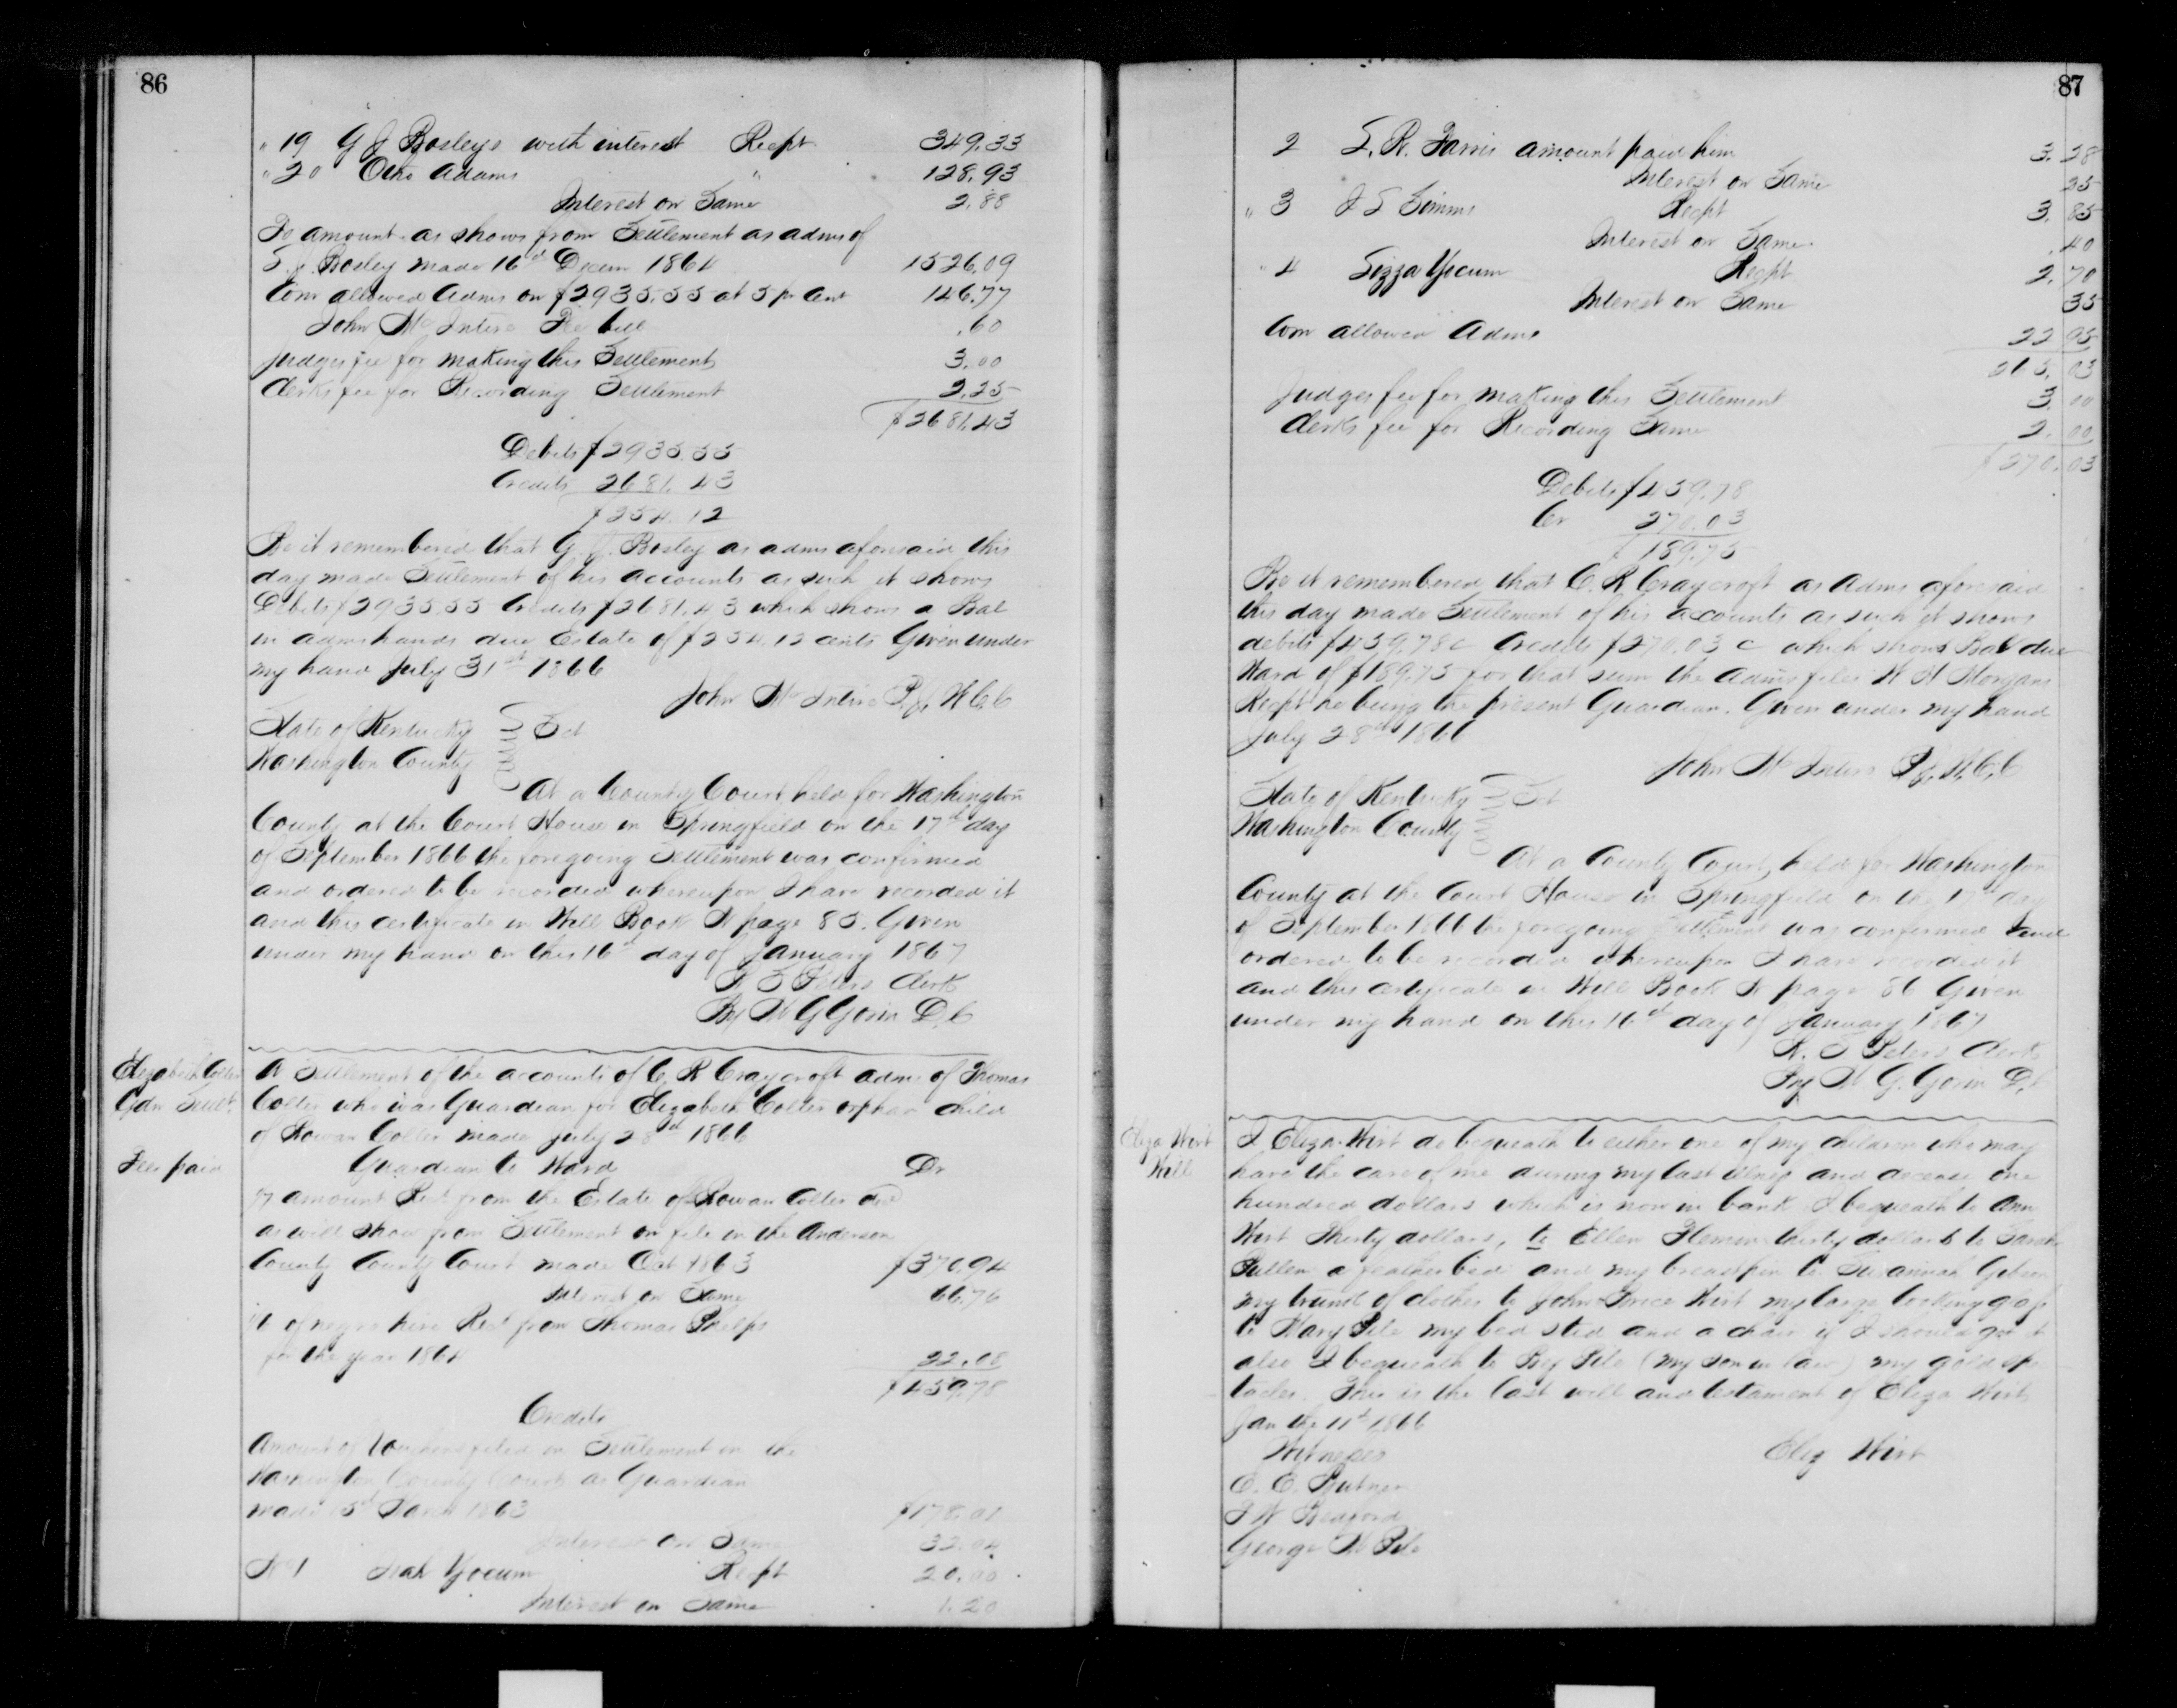 86
" 19 G J Bosleys with interest Recpt 349.33
" 20 Otho Adams " 128.93
Interest on Same 2.88
To amount as shows from Settlement as admr of
S. J. Bosley made 16th Decem 1864 1526.09
Com allowed Admr on $2935.55 at 5 pr cent 146.77
John McIntire Fee bill .60
Judges fee for making this Settlement 3.00
Clerks fee for Recording Settlement 2.25
$2681.43
Debits $2935.55
Credits 2681.43
$254.12
Be it remembered that G. J. Bosley as admr aforesaid this
day made Settlement of his accounts as such it shows
Debits $2935.55 Credits $2681.43 which shows a Bal
in admrs hands due Estate of $254.12 cents Given under
my hand July 31st 1866
John McIntire P.J. W C C
State of Kentucky
Washington County Sct
At a County Court held for Washington
County at the Court House in Springfield on the 17th day
of September 1866 the foregoing Settlement was confirmed
and ordered to be recorded whereupon I have recorded it
and this certificate in Will Book N page 85. Given
under my hand on this 16th day of January 1867
W T Peters Clerk
By W G Gorin D.C
Elizabeth Colter
Gdn Settt.
Fees paid
A Settlement of the accounts of C. R Craycroft admr of Thomas
Colter who was Guardian for Elizabeth Colter orphan child
of Rowan Colter made July 28th 1866
Guardian to Ward Dr
To amount Rect from the Estate of Rowan Colter decd
as will show from Settlement on file in the Anderson
County County Court made Oct 1863 $370.94
Interest on Same 66.76
" of negro hire Rect from Thomas Phelps
for the year 1864 22.08
$459.78
Credits
Amount of Vouchers filed in Settlement in the
Washington County Court as Guardian
made 3d March 1863 $178.01
Interest on Same 32.04
No 1 Isah Yocum Recpt 20.00
Interest on Same 1.20
87
2 S. R. Farris amount paid him 3.28
Interest on Same 25
" 3 J S Simms Recpt 3.85
Interest on Same .40
" 4 Sizza Yocum Recpt 2.70
Interest on Same 35
Com allowed Admr 22 95
265.03
Judges fee for making this Settlement 3.00
Clerks fee for Recording Same 2.00
$270.03
Debits $459.78
Cr 270.03
$189.75
Be it remembered that C. R Craycroft as Admr aforesaid
this day made Settlement of his accounts as such it shows
debits $459.78c Credits $270.03 c which shows Bal due
Ward of $189.75 for that sum the Admr files W H Morgans
Recpt he being the present Guardian. Given under my hand
July 28th 1866
John McIntire P.J. W.C.C
State of Kentucky
Washington County Sct
At a County Court, held for Washington
County at the Court House in Springfield on the 17th day
of September 1866 the foregoing Settlement was confirmed and
ordered to be recorded whereupon I have recorded it
and this certificate in Will Book N page 86 Given
under my hand on this 16th day of January 1867
W. T Peters Clerk
By W G. Gorin D.C
Eliza Wirt
Will
I Eliza Wirt do bequeath to either one of my children who may
have the care of me during my last illness and decease one
hundred dollars which is now in bank I bequeath to Ann
Wirt Thirty dollars, to Ellen Flemin thirty dollars to Sarah
Pullen a feather bed and my breastpin to Susannah Gibson
my trunk of clothes to John Price Wirt my large looking glass
to Mary Pile my bed sted and a chair if I should get it
also I bequeath to Bej Pile (my son in law) my gold spe
tacles. This is the last will and testament of Eliza Wirt
Jan the 11th 1866
Witnesses Eliz Wirt
E. E. Putner
J W Bedford
George W Pile